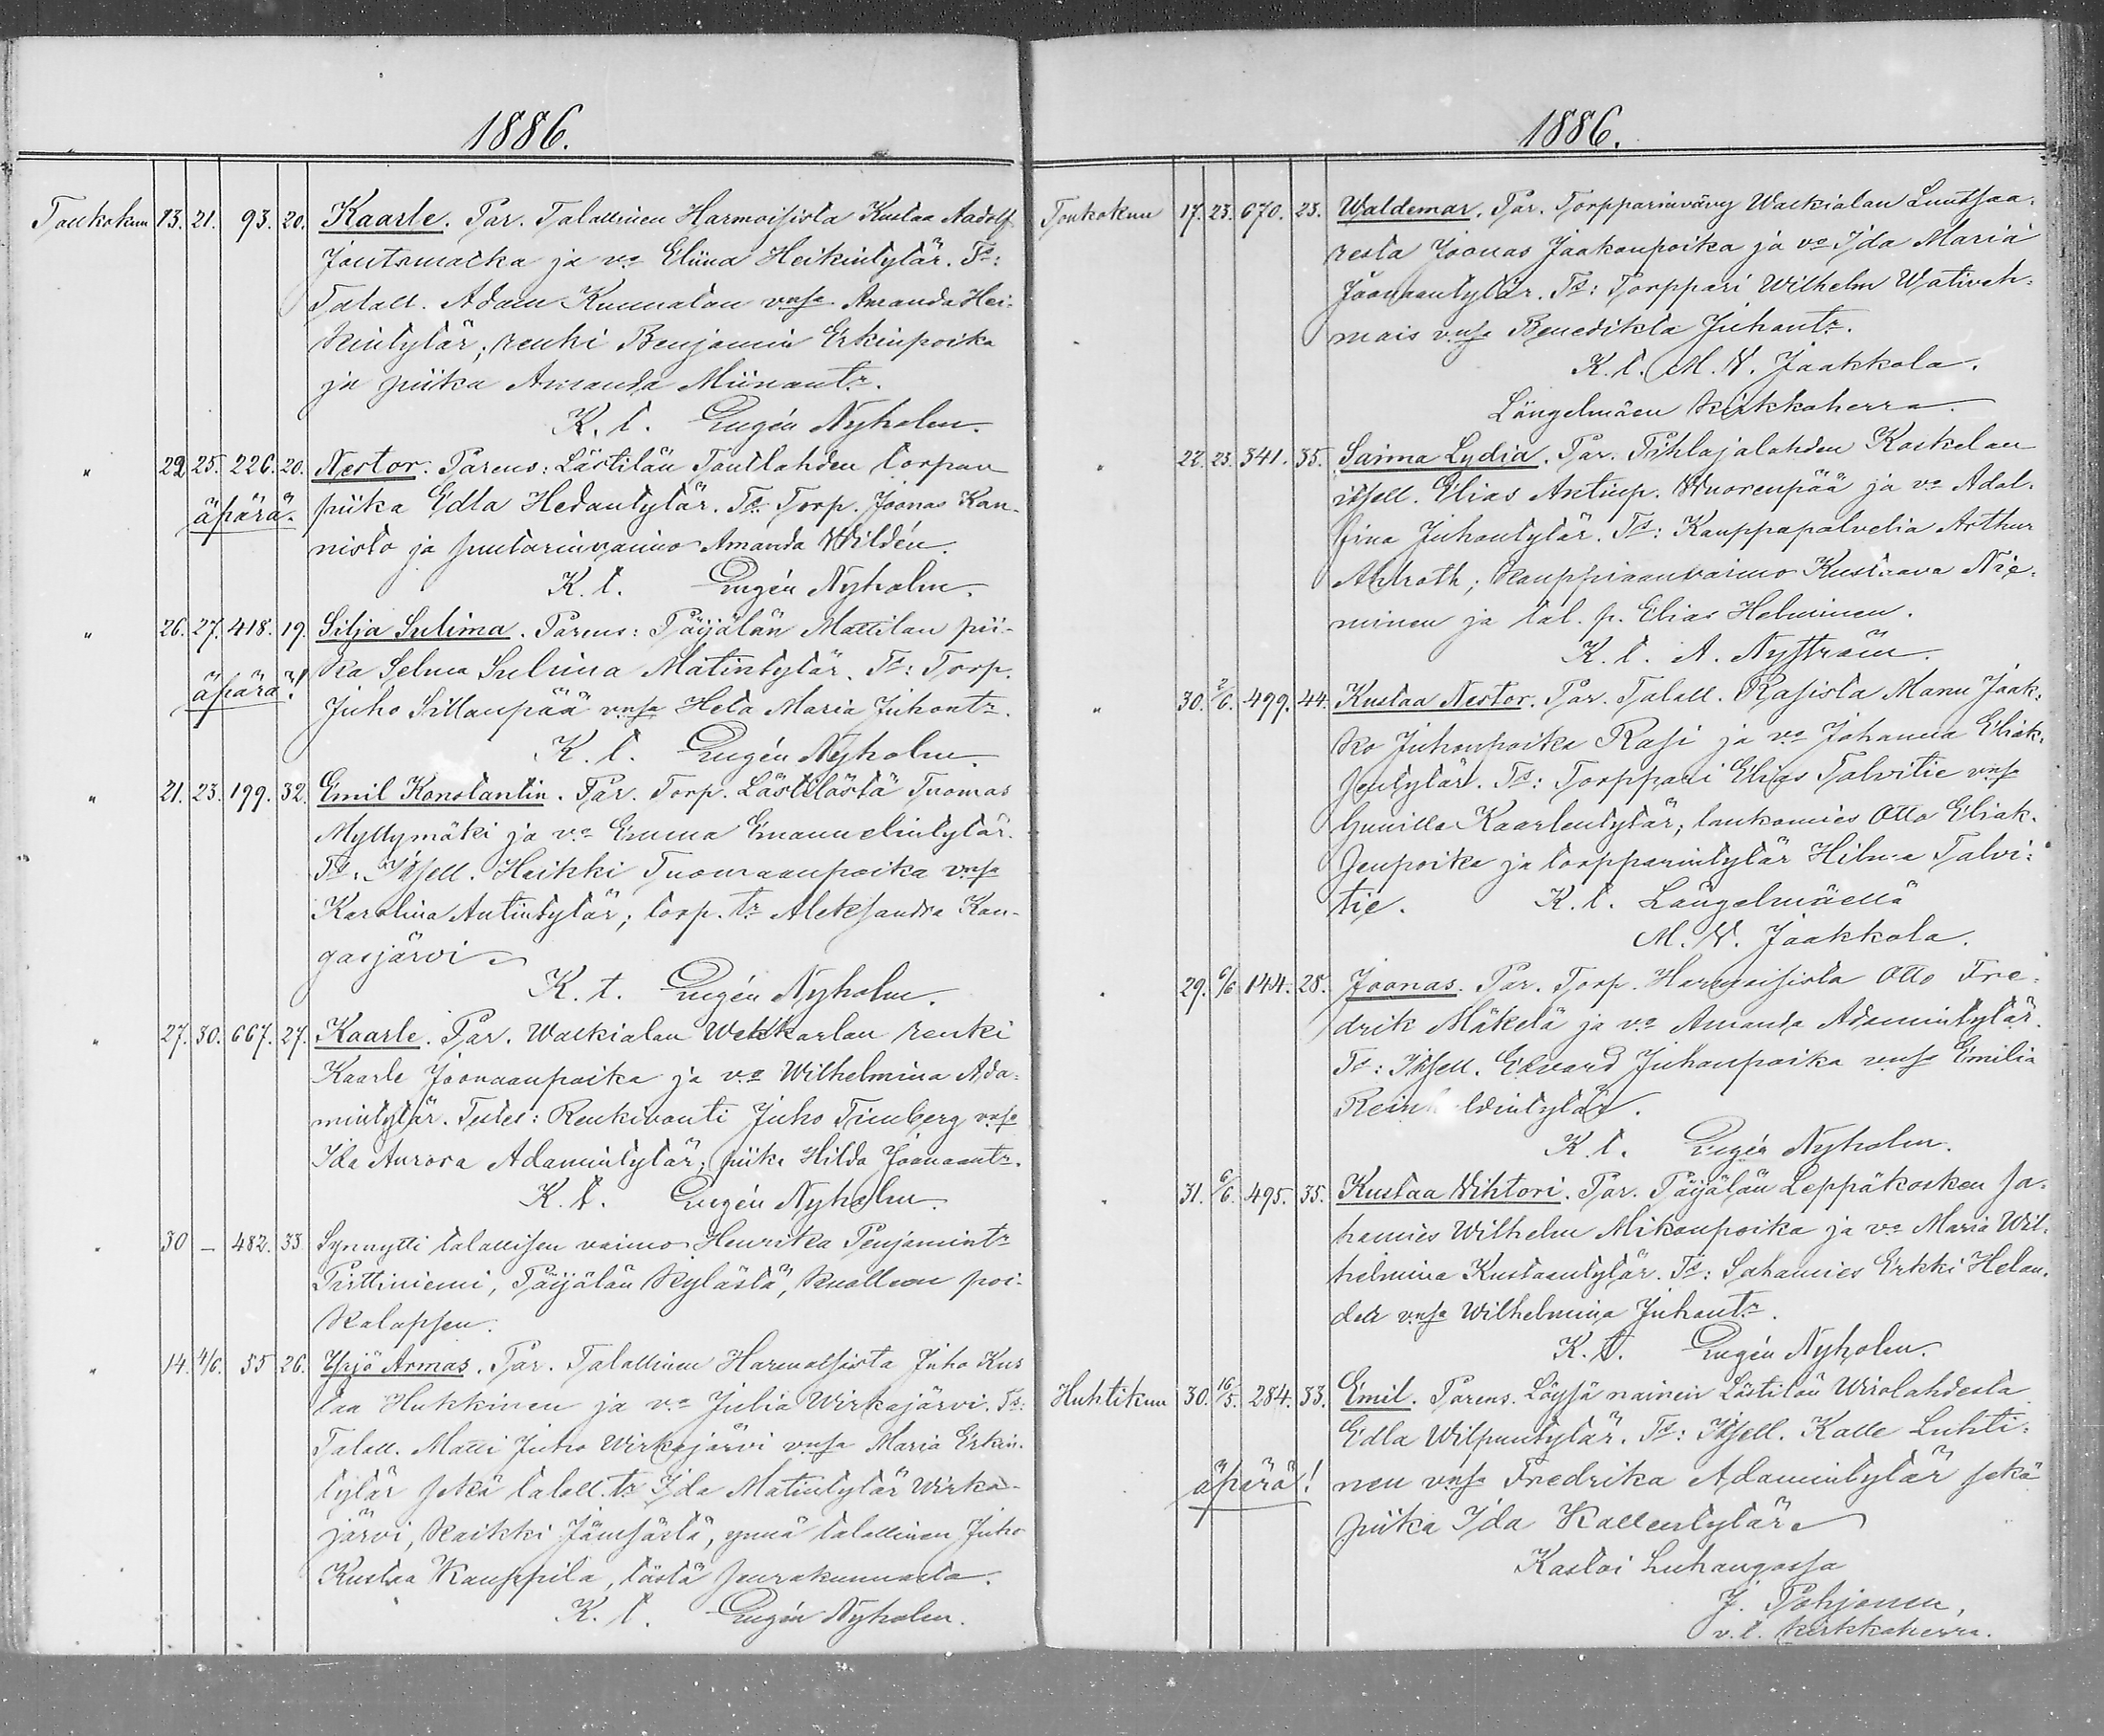 1886.
Toukokuu 13. 21. 93. 20. Kaarle. Par. Talallinen Harmoisista Kustaa Aadolf
Joutsmatka ja vo Eliina Heikintytär. Ts:
Talall. Adam Kuumalan vnsa Amanda Hei-
kintytär; renki Benjamin Erkinpoika
ja piika Amanda Miinantr.
K. t. Eugén Nyholm.
" 22. 25. 226. 20. Nestor. Parens: Lästilän Tautlahden torpan
äpärä. piika Edla Hedantytär. Ts: Torp. Joonas Kan-
nisto ja suutarinvaimo Amanda Wildén.
K. t. Eugén Nyholm.
" 26. 27. 418. 19. Silja Sulima. Parens: Päijälän Mattilan pii-
äpärä! ka Selma Sulima Matintytär. Ts: Torp.
Juho Sillanpää vnsa Heta Maria Juhontr.
K. t. Eugén Nyholm.
" 21. 23. 199. 32. Emil Konstantin. Par. Torp. Lästilästä Tuomas
Myllymäki ja vo Emma Emanuelintytär.
Ts: Itsell. Heikki Tuomaanpoika vnsa
Karolina Antintytär; torp. tr Aleksandra Kan-
gasjärvi
K. t. Eugén Nyholm.
" 27. 30. 667. 27. Kaarle. Par. Walkialan Wekkarlan renki
Kaarle Joonaanpoika ja vo Wilhelmina Ada-
mintytär. Testes: Renkivouti Juho Timberg vnsa
Ida Aurora Adamintytär; piika Hilda Joonaantr.
K. t. Eugén Nyholm.
" 30 – 482. 33. Synnytti talallisen vaimo Henrika Penjamintr
Pirttiniemi, Päijälän kylästä, kuolleen poi-
kalapsen.
" 14. 4/6. 55 26. Yrjö Armas. Par. Talallinen Harmoisista Juho Kus
taa Hukkinen ja vo Julia Wirkajärvi. Ts:
Talall. Matti Juho Wirkajärvi vnsa Maria Erkin-
tytär sekä talall. tr Ida Matintytär Wirka-
järvi, kaikki Jämsästä, ynnä talallinen Juho
Kustaa Kauppila, tästä seurakunnasta.
K. t. Eugén Nyholm.
1886.
Toukokuu 17. 23. 670. 23. Waldemar. Par. Torpparinvävy Walkialan Luutsaa-
resta Joonas Jaakonpoika ja vo Ida Maria
Joonaantytär. Ts: Torppari Wilhelm Wativeh-
mais vnsa Benedikta Juhontr.
K. t. M. W. Jaakkola.
Längelmäen kirkkoherra.
" 22. 23. 341. 35. Saima Lydia. Par. Pihlajalahden Koskelan
itsell. Elias Antinp. Wuorenpää ja vo Adol-
fina Juhontytär. Ts: Kauppapalvelia Arthur
Ahlroth; kauppiaanvaimo Kustaava Nie-
minen ja tal. p. Elias Helminen.
K. t. A. Nyström.
" 30. 2/6. 499. 44. Kustaa Nestor. Par. Talall. Rasista Manu Jaak-
ko Juhonpoika Rasi ja vo Johanna Eliak-
sentytär. Ts: Torppari Elias Talvitie vnsa
Gunilla Kaarlentytär; lankomies Otto Eliak-
senpoika ja torpparintytär Hilma Talvi-
tie. K. t. Längelmäellä
M. W. Jaakkola.
" 29. 6/6 144. 28. Joonas. Par. Torp. Harmoisista Otto Fre-
drik Mäkelä ja vo Amanda Adamintytär.
Ts: Itsell. Edvard Juhonpoika vnsa Emilia
Rein ldintytär.
K. t. Eugén Nyholm.
" 31. 6/6. 495. 35. Kustaa Wihtori. Par. Päijälän Leppäkosken sa-
hamies Wilhelm Mikonpoika ja vo Maria Wil-
helmina Kustaantytär. Ts: Sahamies Erkki Helan-
der vnsa Wilhelmina Juhontr.
K. t. Eugén Nyholm.
Huhtikuu 30. 16/5. 284. 33. Emil. Parens. Löysä nainen Lästilän Wirolahdesta
Edla Wilpuntytär. Ts: Itsell. Kalle Luhti-
äpärä! nen vnsa Fredrika Adamintytär sekä
piika Ida Kallentytär
Kastoi Luhangossa
J. Pohjonen,
v. t. kirkkoherra.